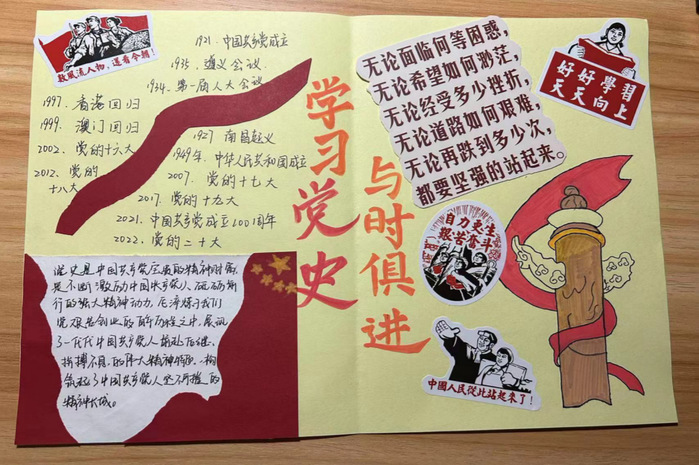 数风流人物，还看今朝！
1921. 中国共产党成立
1935. 遵义会议
1934. 第一届人大会议
1997. 香港回归
1999. 澳门回归
2002. 党的十六大
2012. 党的
十八大
1927 南昌起义
1949年. 中华人民共和国成立
2007. 党的十七大
2017. 党的十九大
2021. 中国共产党成立100周年
2022. 党的二十大
学习党史
与时俱进
无论面临何等困惑，
无论希望如何渺茫，
无论经受多少挫折，
无论道路如何艰难，
无论再跌到多少次，
都要坚强的站起来。
好好學習
天天向上
自力更生
艰苦奋斗
中國人民從此站起來了！
党史是中国共产党宝贵的精神财富，
是不断激励中国共产党人砥砺前
行的强大精神动力，
党艰苦创业的历程之中，展现
了一代代中国共产党人前赴后继、
拼搏不息的伟大精神
筑起了中国共产党人坚不可摧的
精神长城。